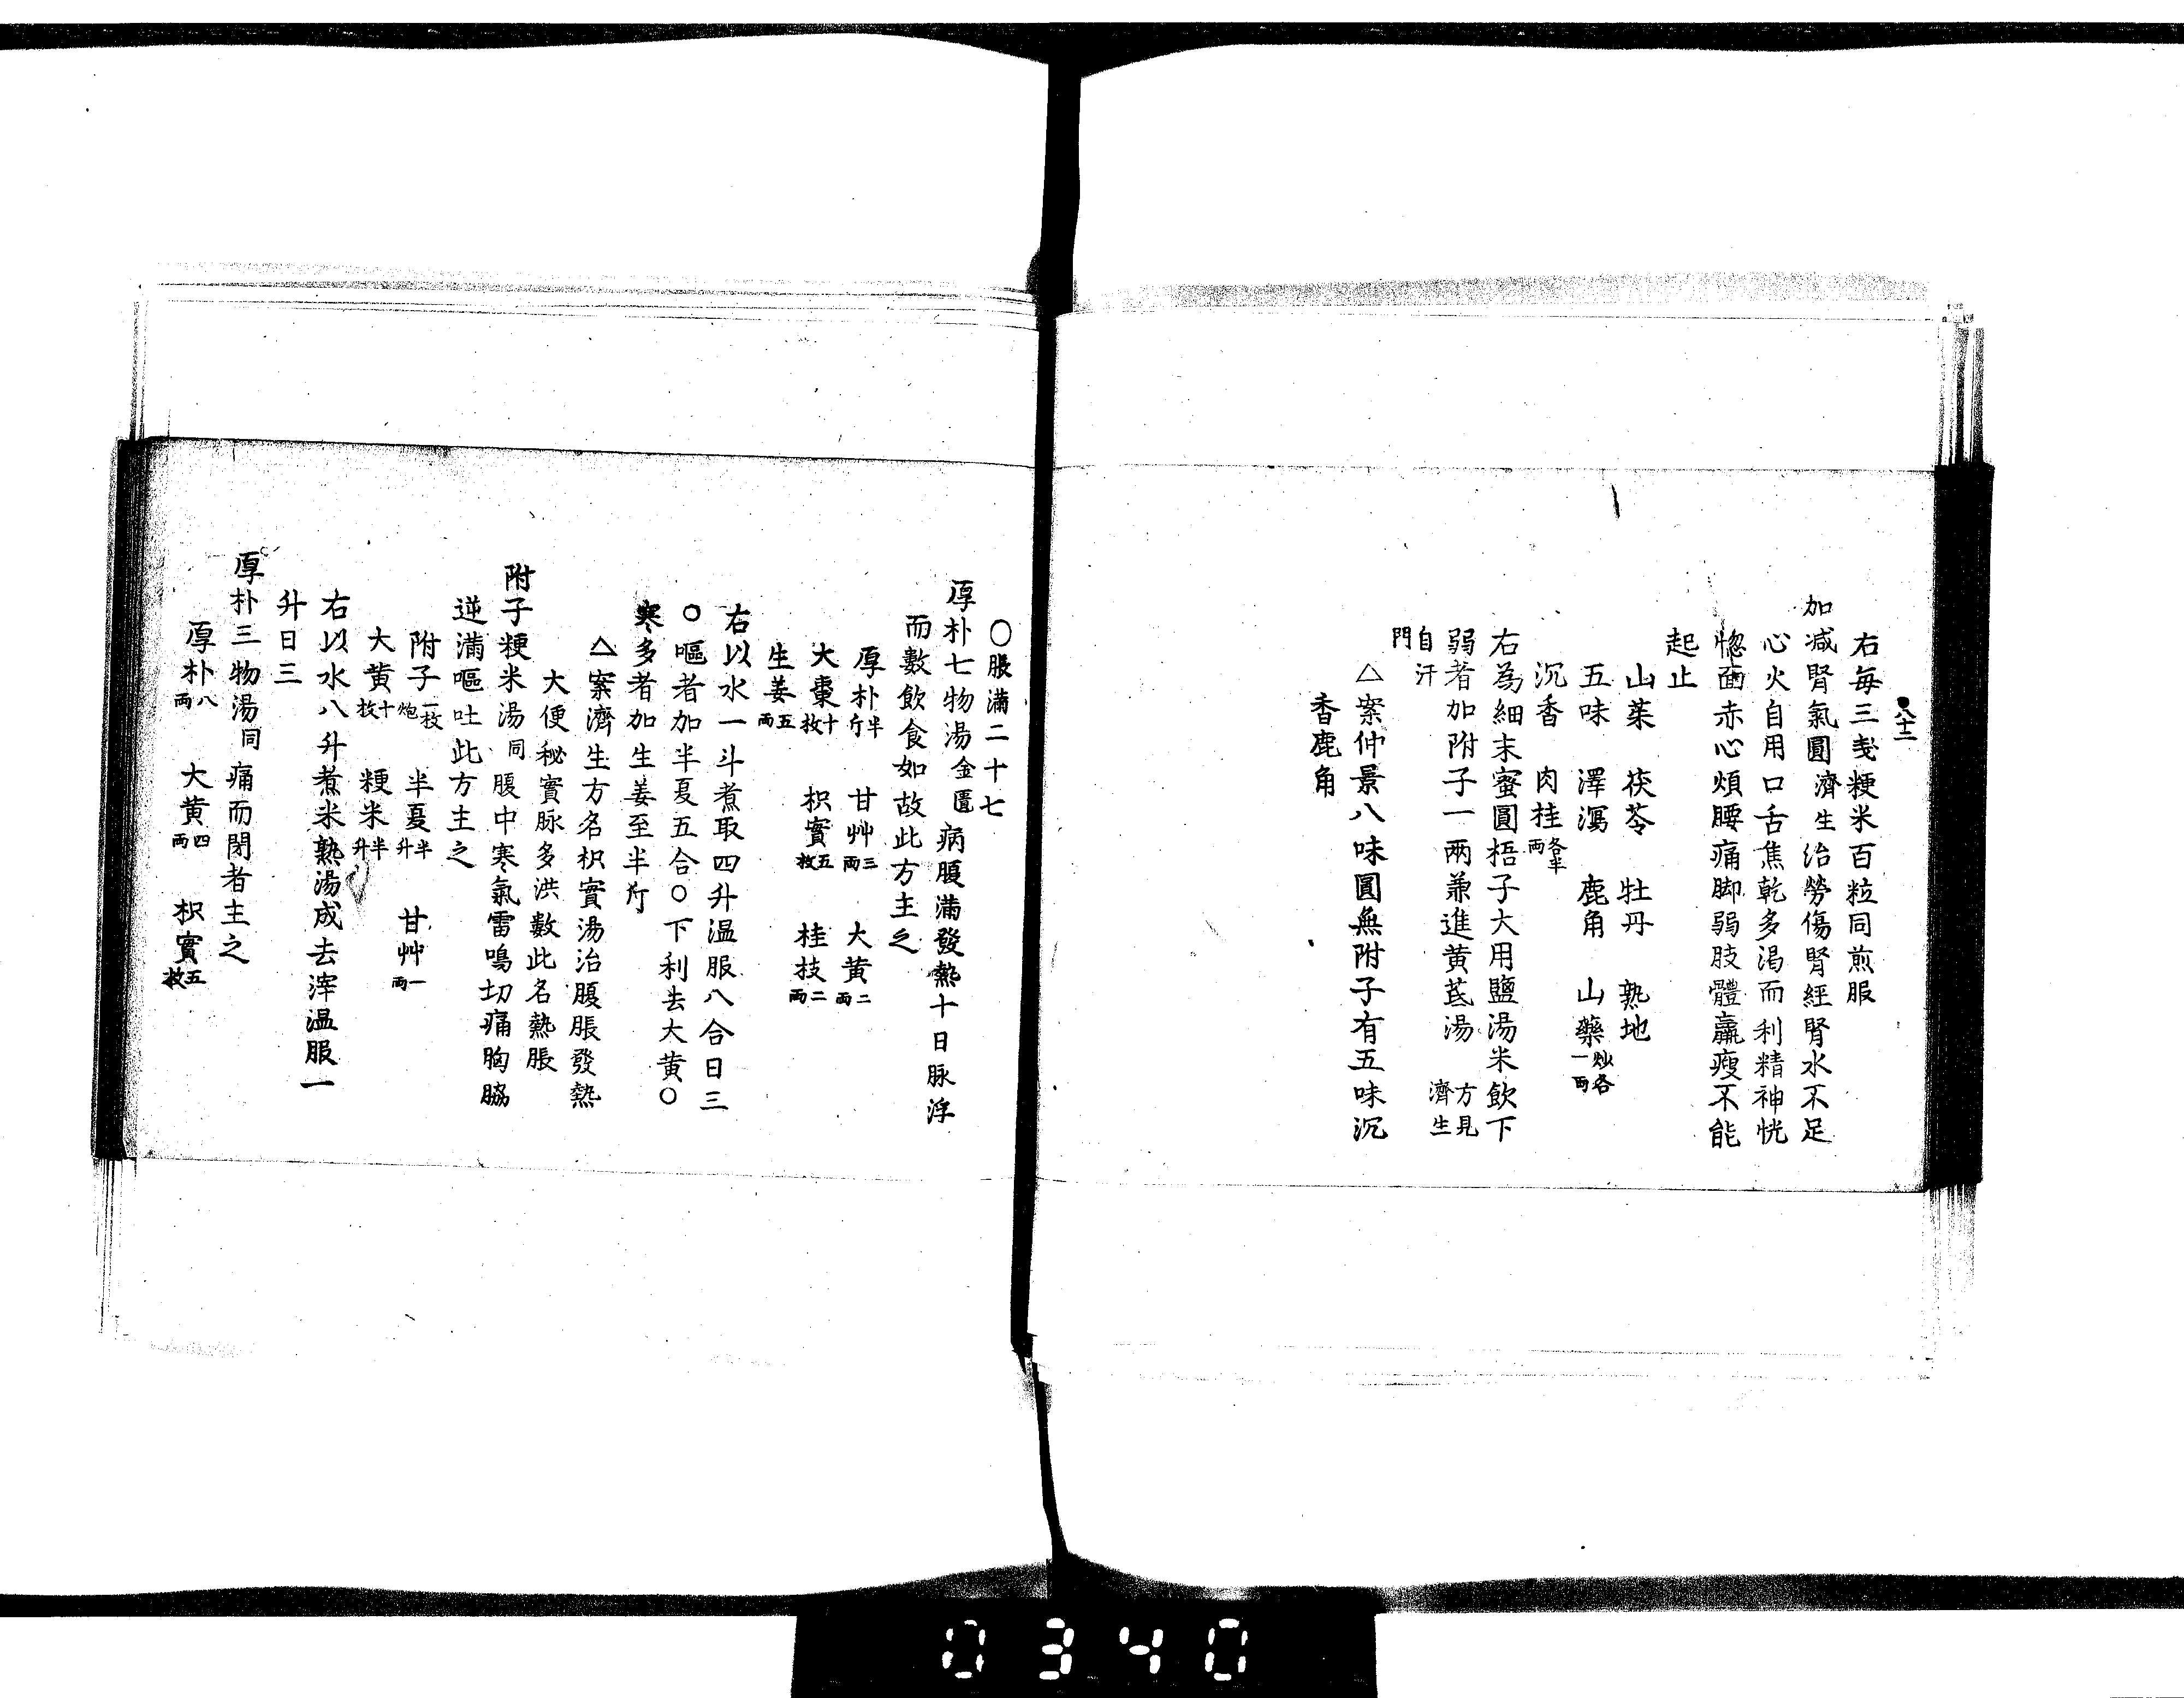 右毎三戔粳米百粒同煎服
加减腎氣圓濟生治勞傷腎經腎水不足
心火自用口舌焦乾多渇而利精神恍
惚面赤心煩腰痛脚弱肢體羸瘦不能
起止
山茱 茯苓 牡丹 熟地
五味 澤瀉 鹿角 山藥炒各一両
沉香 肉桂各半両
右為細末蜜圓梧子大用鹽湯米飲下
弱者加附子一兩兼進黄芪湯方見濟生
自汗門
△案仲景八味圓無附子有五味沉
香鹿角
〇脹滿二十七
厚朴七物湯金匱病腹滿發熱十日脉浮
而數飲食如故此方主之
厚朴半斤 甘艸三両 大黄二両
大棗十枚 枳實五枚 桂技二両
生姜五両
右以水一斗煮取四升温服八合日三
〇嘔者加半夏五合〇下利去大黄〇
寒多者加生姜至半斤
△案濟生方名枳實湯治腹脹發熱
大便秘實脉多洪數此名熱脹
附子粳米湯同腹中寒氣雷鳴切痛胸脇
逆滿嘔吐此方主之
附子一枚炮 半夏半升 甘艸一両
大黄十枚 粳米半升
右以水八升煮米熟湯成去滓温服一
升日三
厚朴三物湯同痛而閉者主之
厚朴八両 大黄四両 枳實五枚
0340